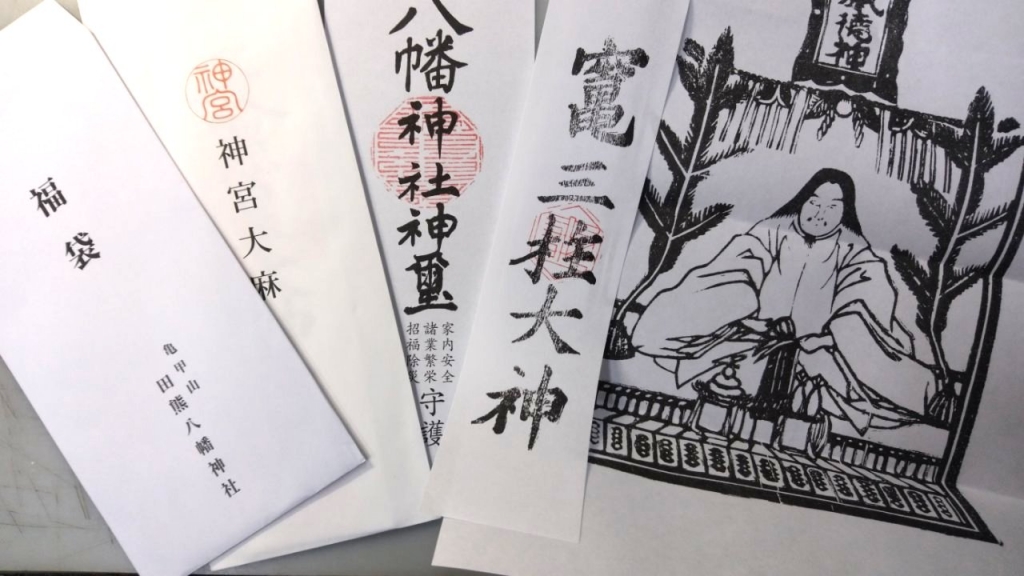 福袋
亀甲山
田熊八幡神社
神宮
神宮大麻
八幡神社神璽
家内安全
諸業繁栄
招福除災
守護
竈三柱大神
歳徳神